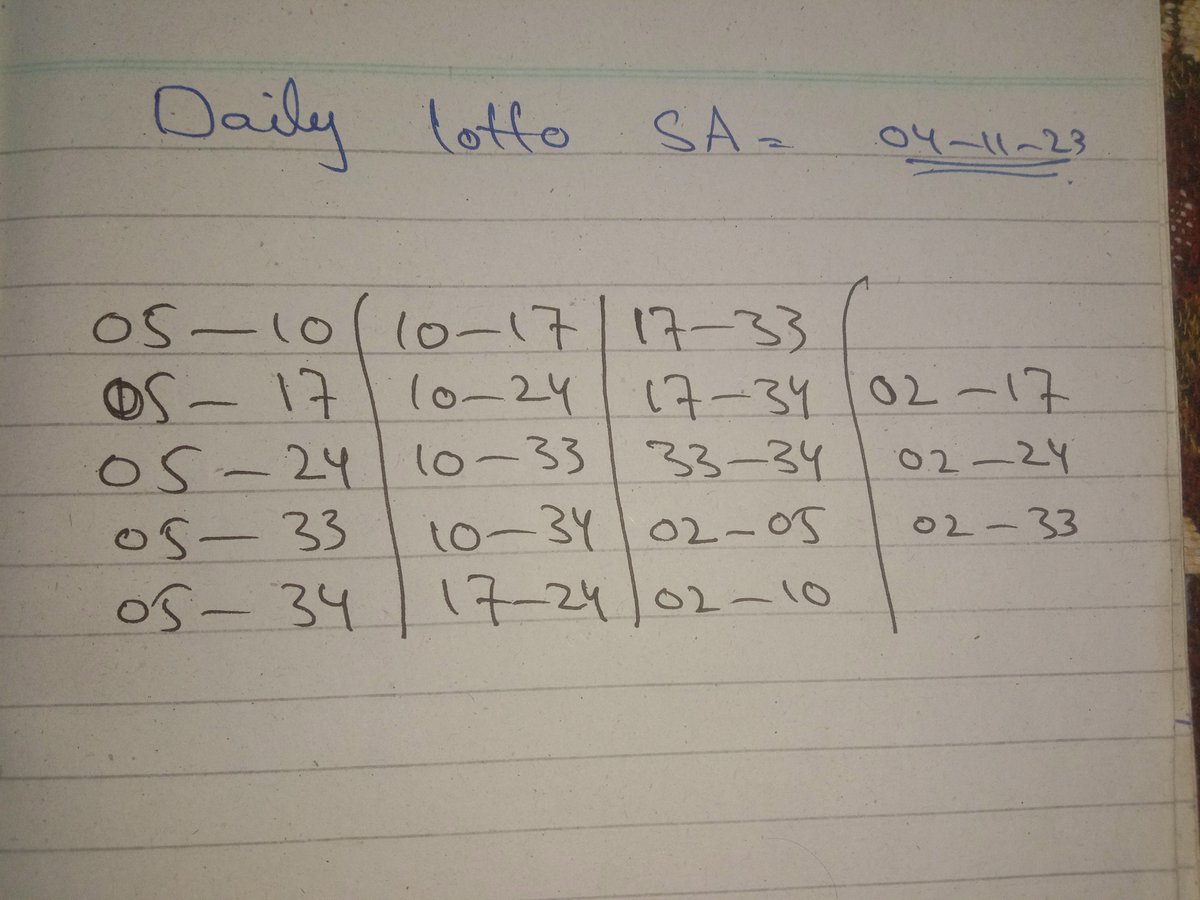 Daily lotto SA = 04-11-23
05-10 10-17 17-33
05-17 10-24 17-34 02-17
05-24 10-33 33-34 02-24
05-33 10-34 02-05 02-33
05-34 17-24 02-10